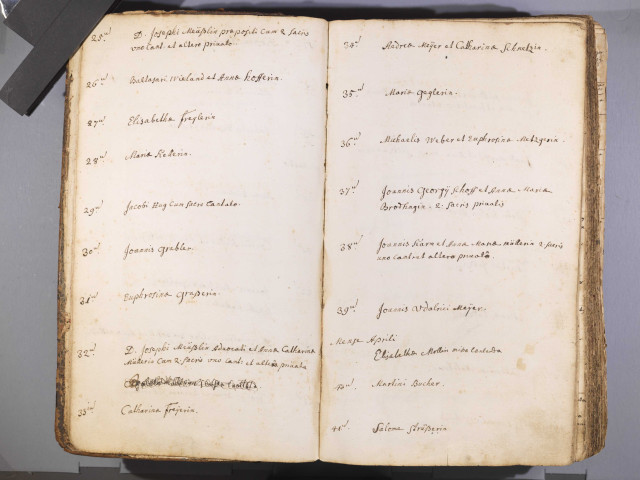 25ᵘˢ D. Josephi Meüßlin præpositi Cum 2 sacris
uno Cant. et altero privato.
26ᵘˢ Baltasari Wieland et Anna Hofferin.
27ᵘˢ Elisabetha Freyerin
28ᵘˢ Maria
29ᵘˢ Jacobi Hug Cum sacro Cantato.
30ᵘˢ Joannis Grebler.
31ᵘˢ Euphrosina Grasserin.
32ᵘˢ D. Josephi Meüßlin Advocati et Anna Catharina
Mülleris Cum 2 sacris uno Cant: et altero privato
33ᵘˢ Catharina Freyerin.
34ᵘˢ Andrea Meyer et Catharina Schnetzin.
35ᵘˢ Maria Geglerin.
36ᵘˢ Michaelis Weber et Euphrosina Metzgerin.
37ᵘˢ Joannis Georgij Schoff et Anna Maria
Brodhagin. 2. sacris privatis
38ᵘˢ Joannis et Anna Maria Müllerin 2 sacris
uno cant. et altero privato.
39ᵘˢ Joannis Udalrici Meyer.
Mense Aprili
Elisabetha
40ᵘˢ Martini Bucher.
41ᵘˢ Salome Sträßerin